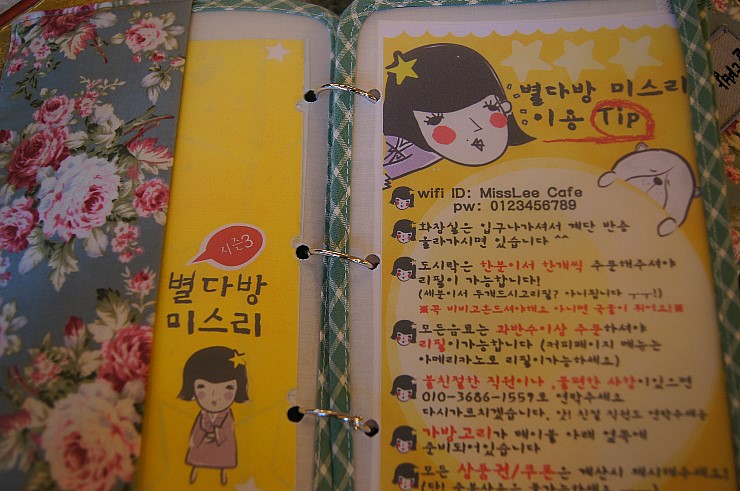 시즌3
별다방
미스리
별다방 미스리
이용 Tip
wifi ID: MissLee Cafe
pw: 0123456789
화장실은 입구나가셔서 계단 반층
올라가시면 있습니다 ^^
도시락은 한분이서 한개씩 주문해주셔야
리필이 가능합니다!
(세분이서 두개드시고리필? 아니됩니다 ㅜㅜ!)
※꼭 비비고흔드셔야해요 아니면 국물이 튀어요!※
모든음료는 과반수이상 주문하셔야
리필이가능합니다 (커피페이지 메뉴는
아메리카노로 리필이가능하세요)
불친절한 직원이나, 불편한 사항이있으면
010-3686-1559로 연락주세요
다시가르치겠습니다. 앗! 친절 직원도 연락주세용
가방고리가 테이블 아래 옆쪽에
준비되어있습니다
모든 상품권/쿠폰은 계산시 제시해주세요!